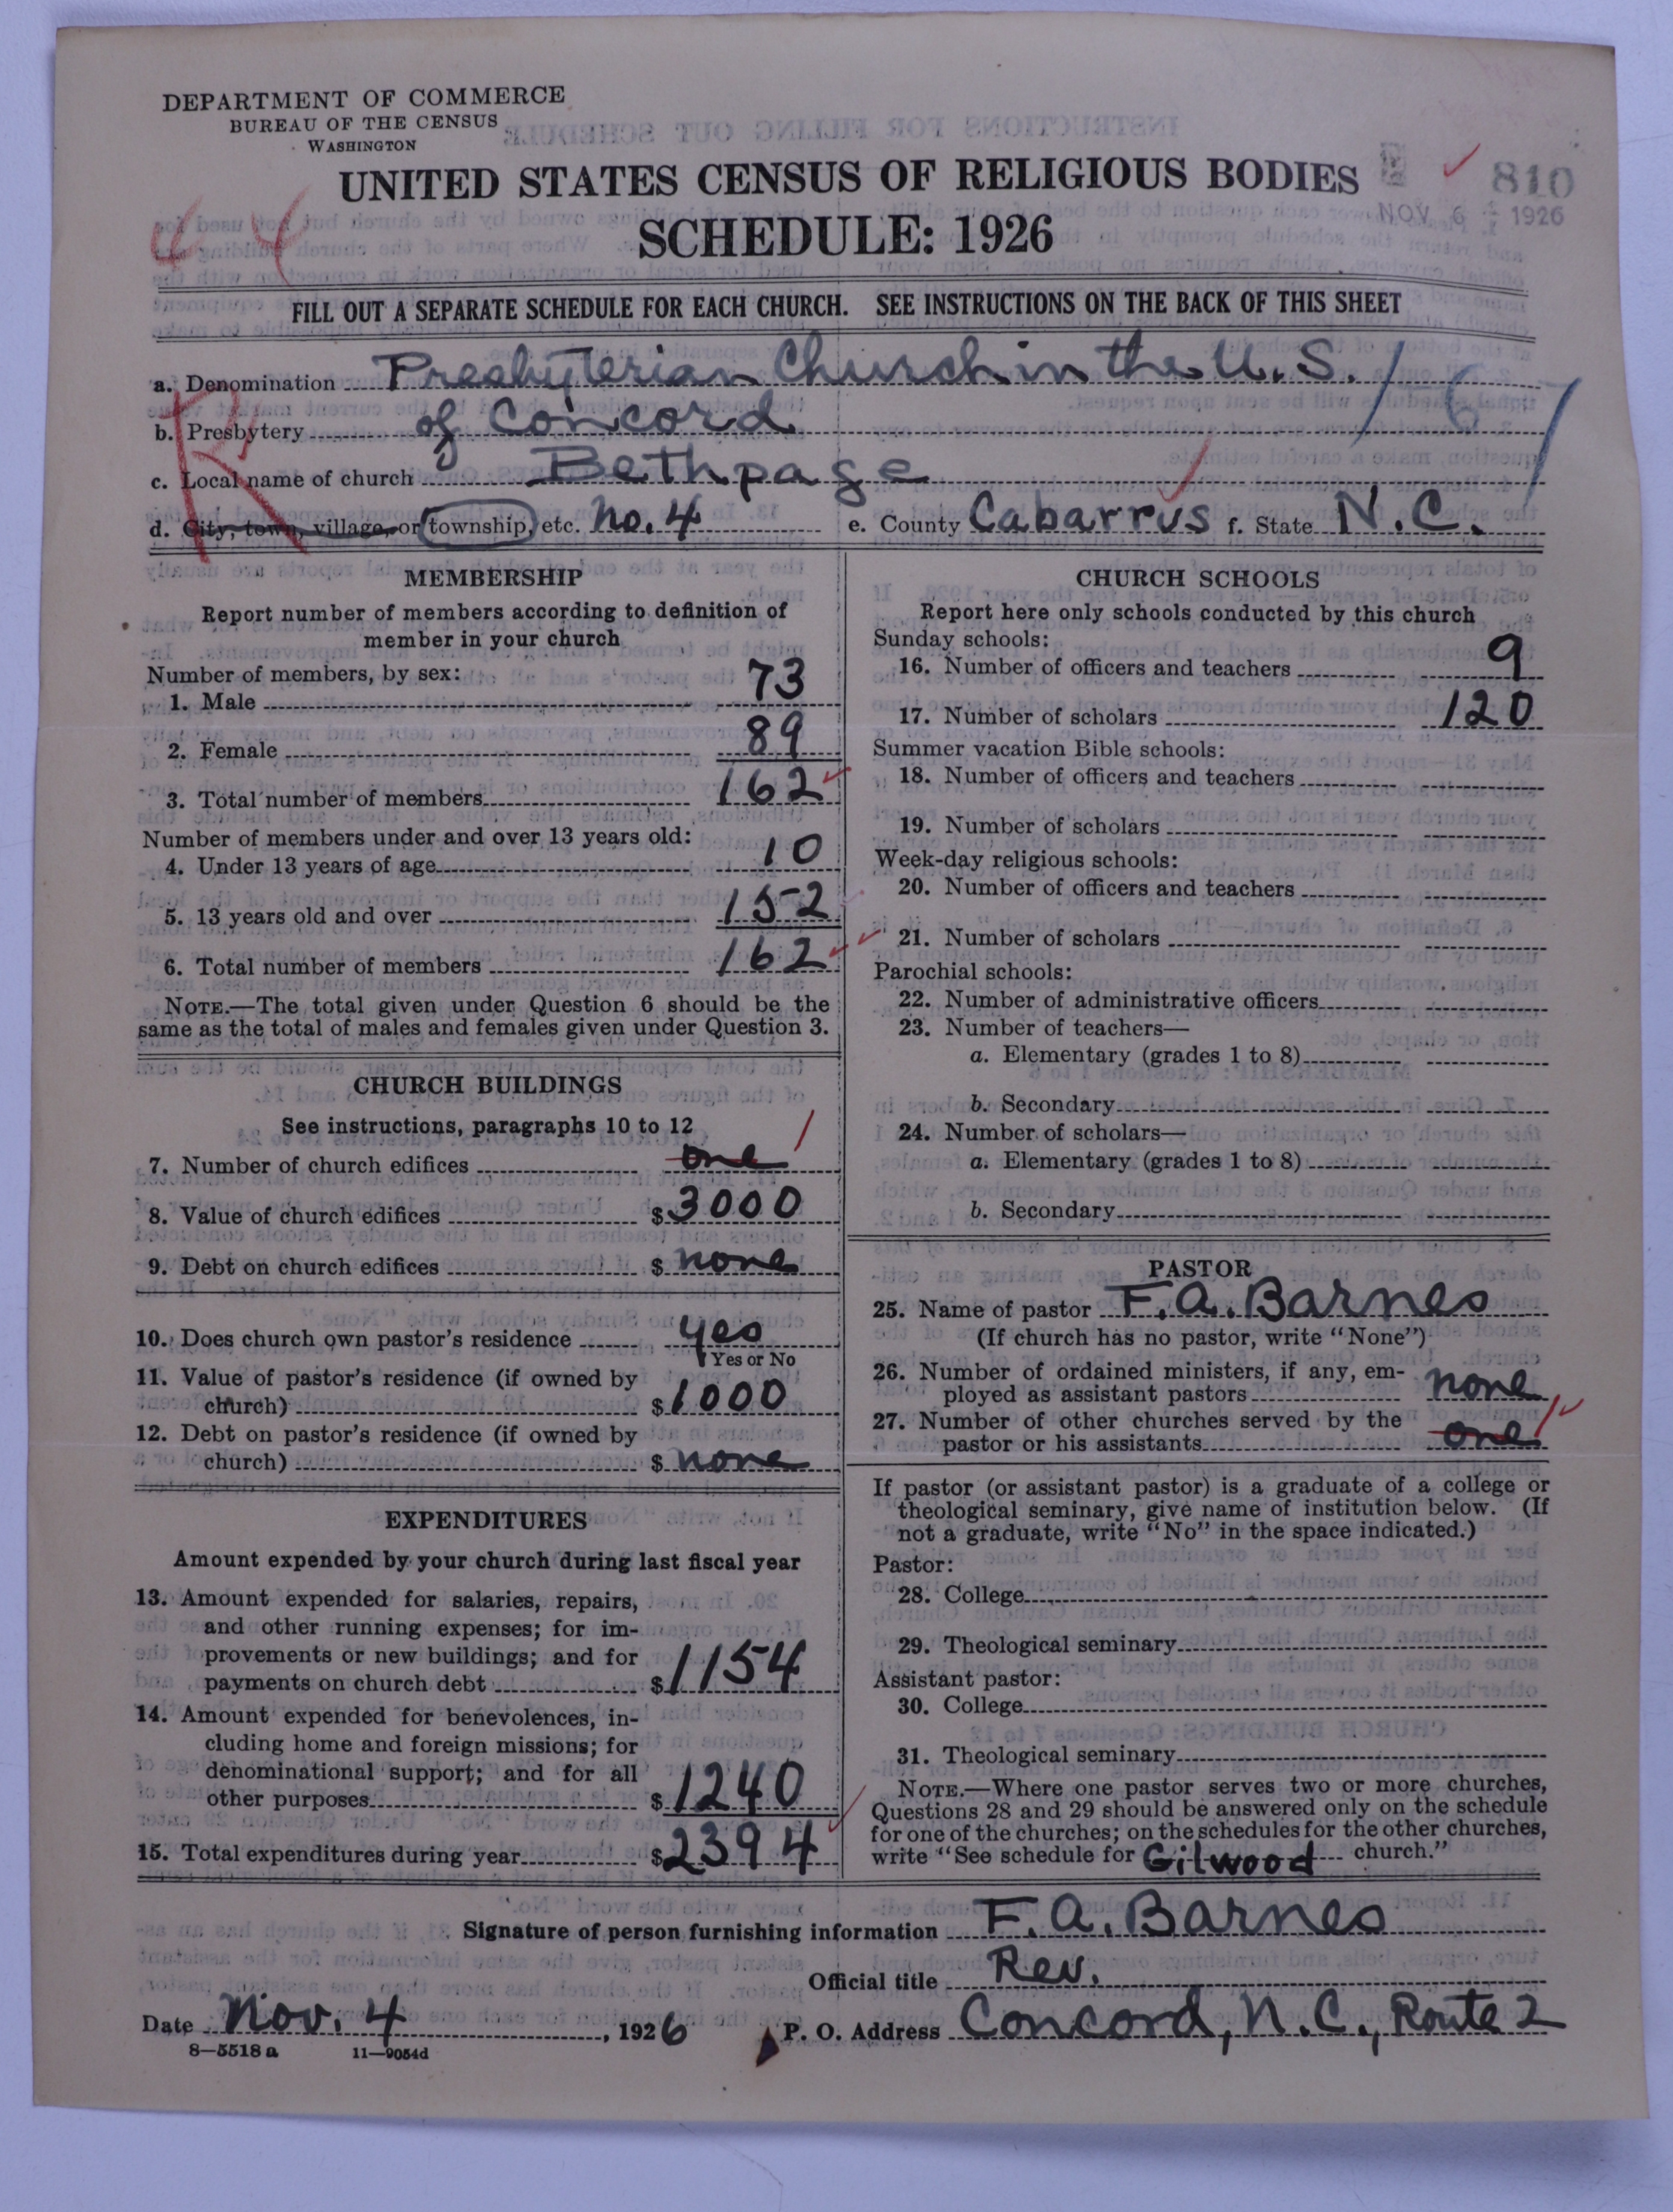 DEPARTMENT OF COMMERCE
BUREAU OF THE CENSUS
WASHINGTON
UNITED STATES CENSUS OF RELIGIOUS BODIES
SCHEDULE: 1926
810
NOV 6 1926
44
FILL OUT A SEPARATE SCHEDULE FOR EACH CHURCH. SEE INSTRUCTIONS ON THE BACK OF THIS SHEET
a. Denomination Presbyterian Church in the U.S.
167
b. Presbytery of Concord
R
c. Local name of church Bethpage
d. City, town, village, or township, etc. No. 4 e. County Cabarrus f. State N.C.
MEMBERSHIP
Report number of members according to definition of
member in your church
Number of members, by sex:
1. Male 73
2. Female 89
3. Total number of members 162
Number of members under and over 13 years old:
4. Under 13 years of age 10
5. 13 years old and over 152
6. Total number of members 162
NOTE.—The total given under Question 6 should be the
same as the total of males and females given under Question 3.
CHURCH BUILDINGS
See instructions, paragraphs 10 to 12
7. Number of church edifices one 1
8. Value of church edifices $ 3000
9. Debt on church edifices $ none
10. Does church own pastor's residence yes
Yes or No
11. Value of pastor's residence (if owned by
church) $ 1000
12. Debt on pastor's residence (if owned by
church) $ none
EXPENDITURES
Amount expended by your church during last fiscal year
13. Amount expended for salaries, repairs,
and other running expenses; for im-
provements or new buildings; and for
payments on church debt $ 1154
14. Amount expended for benevolences, in-
cluding home and foreign missions; for
denominational support; and for all
other purposes $ 1240
15. Total expenditures during year $ 2394
CHURCH SCHOOLS
Report here only schools conducted by this church
Sunday schools:
16. Number of officers and teachers 9
17. Number of scholars 120
Summer vacation Bible schools:
18. Number of officers and teachers
19. Number of scholars
Week-day religious schools:
20. Number of officers and teachers
21. Number of scholars
Parochial schools:
22. Number of administrative officers
23. Number of teachers—
a. Elementary (grades 1 to 8)
b. Secondary
24. Number of scholars—
a. Elementary (grades 1 to 8)
b. Secondary
PASTOR
25. Name of pastor F. A. Barnes
(If church has no pastor, write "None")
26. Number of ordained ministers, if any, em-
ployed as assistant pastors none
27. Number of other churches served by the
pastor or his assistants one 1
If pastor (or assistant pastor) is a graduate of a college or
theological seminary, give name of institution below. (If
not a graduate, write "No" in the space indicated.)
Pastor:
28. College
29. Theological seminary
Assistant pastor:
30. College
31. Theological seminary
NOTE.—Where one pastor serves two or more churches,
Questions 28 and 29 should be answered only on the schedule
for one of the churches; on the schedules for the other churches,
write "See schedule for Gilwood church."
Signature of person furnishing information F. A. Barnes
Official title Rev.
Date Nov. 4, 1926 P. O. Address Concord, N. C., Route 2
8—5518 a 11—9054d